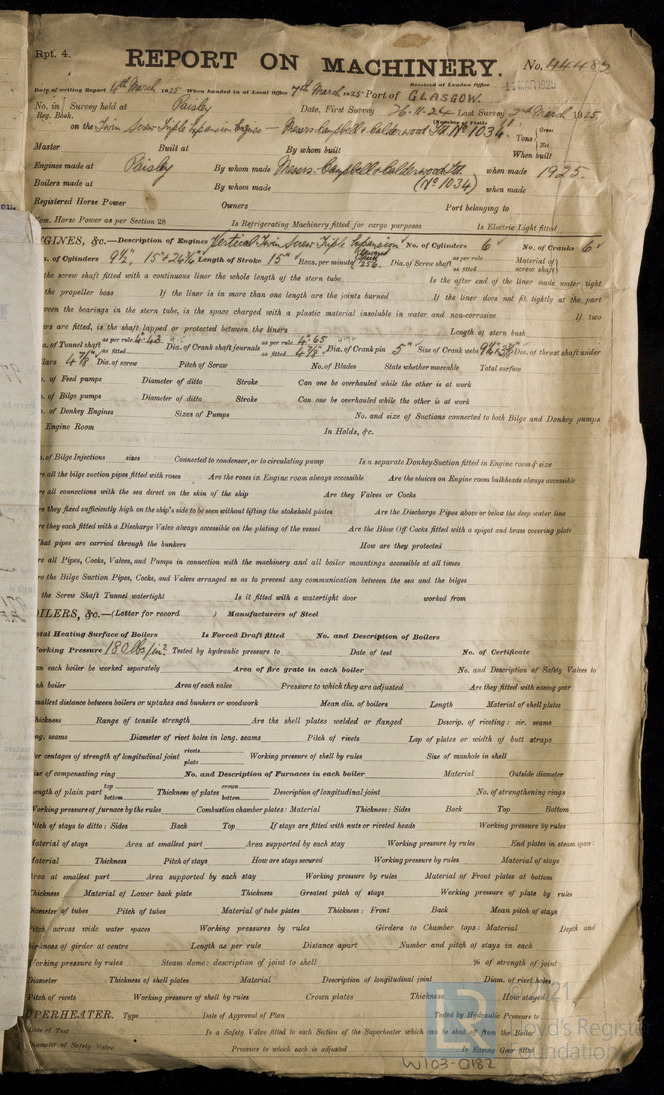 Rpt. 4.
REPORT ON MACHINERY.
No. 44483
Date of writing Report 4th March 1925 When handed in at Local Office 7th March 1925 Port of GLASGOW.
Received at London Office
No. in Survey held at Paisley Date, First Survey 26.11.24 Last Survey 2nd March 1925
Reg. Book.
(Number of Visits
on the Twin Screw Triple Expansion Engines – Messrs. Campbell & Calderwood Ltd No 1034. Tons Gross Net
Master Built at By whom built When built
Engines made at Paisley By whom made Messrs. Campbell & Calderwood Ltd. (No 1034) when made 1925.
Boilers made at By whom made when made
Registered Horse Power Owners Port belonging to
Nom. Horse Power as per Section 28 Is Refrigerating Machinery fitted for cargo purposes Is Electric Light fitted
NGINES, &c.—Description of Engines Vertical Twin Screw Triple Expansion No. of Cylinders 6 No. of Cranks 6
. of Cylinders 9½", 15" & 24¾" Length of Stroke 15" Revs. per minute 256. Dia. of Screw shaft as per rule as fitted Material of screw shaft
the screw shaft fitted with a continuous liner the whole length of the stern tube Is the after end of the liner made water tight
the propeller boss If the liner is in more than one length are the joints burned If the liner does not fit tightly at the part
ween the bearings in the stern tube, is the space charged with a plastic material insoluble in water and non-corrosive If two
ers are fitted, is the shaft lapped or protected between the liners Length of stern bush
. of Tunnel shaft as per rule 4.43 as fitted Dia. of Crank shaft journals as per rule 4.65 as fitted 4⅞" Dia. of Crank pin 5" Size of Crank webs Dia. of thrust shaft under
lars 4⅞" Dia. of screw Pitch of Screw No. of Blades State whether moveable Total surface
. of Feed pumps Diameter of ditto Stroke Can one be overhauled while the other is at work
. of Bilge pumps Diameter of ditto Stroke Can one be overhauled while the other is at work
. of Donkey Engines Sizes of Pumps No. and size of Suctions connected to both Bilge and Donkey pumps
Engine Room In Holds, &c.
. of Bilge Injections sizes Connected to condenser, or to circulating pump Is a separate Donkey Suction fitted in Engine room & size
re all the bilge suction pipes fitted with roses Are the roses in Engine room always accessible Are the sluices on Engine room bulkheads always accessible
re all connections with the sea direct on the skin of the ship Are they Valves or Cocks
re they fixed sufficiently high on the ship's side to be seen without lifting the stokehold plates Are the Discharge Pipes above or below the deep water line
re they each fitted with a Discharge Valve always accessible on the plating of the vessel Are the Blow Off Cocks fitted with a spigot and brass covering plate
hat pipes are carried through the bunkers How are they protected
re all Pipes, Cocks, Valves, and Pumps in connection with the machinery and all boiler mountings accessible at all times
re the Bilge Suction Pipes, Cocks, and Valves arranged so as to prevent any communication between the sea and the bilges
the Screw Shaft Tunnel watertight Is it fitted with a watertight door worked from
OILERS, &c.—(Letter for record ) Manufacturers of Steel
otal Heating Surface of Boilers Is Forced Draft fitted No. and Description of Boilers
orking Pressure 180 lbs/in² Tested by hydraulic pressure to Date of test No. of Certificate
an each boiler be worked separately Area of fire grate in each boiler No. and Description of Safety Valves to
ch boiler Area of each valve Pressure to which they are adjusted Are they fitted with easing gear
mallest distance between boilers or uptakes and bunkers or woodwork Mean dia. of boilers Length Material of shell plates
hickness Range of tensile strength Are the shell plates welded or flanged Descrip. of riveting: cir. seams
ng. seams Diameter of rivet holes in long. seams Pitch of rivets Lap of plates or width of butt straps
er centages of strength of longitudinal joint rivets plate Working pressure of shell by rules Size of manhole in shell
ize of compensating ring No. and Description of Furnaces in each boiler Material Outside diameter
ength of plain part top bottom Thickness of plates crown bottom Description of longitudinal joint No. of strengthening rings
Working pressure of furnace by the rules Combustion chamber plates: Material Thickness: Sides Back Top Bottom
Pitch of stays to ditto: Sides Back Top If stays are fitted with nuts or riveted heads Working pressure by rules
Material of stays Area at smallest part Area supported by each stay Working pressure by rules End plates in steam space:
Material Thickness Pitch of stays How are stays secured Working pressure by rules Material of stays
Area at smallest part Area supported by each stay Working pressure by rules Material of Front plates at bottom
Thickness Material of Lower back plate Thickness Greatest pitch of stays Working pressure of plate by rules
Diameter of tubes Pitch of tubes Material of tube plates Thickness: Front Back Mean pitch of stays
Pitch across wide water spaces Working pressures by rules Girders to Chamber tops: Material Depth and
thickness of girder at centre Length as per rule Distance apart Number and pitch of stays in each
Working pressure by rules Steam dome: description of joint to shell % of strength of joint
Diameter Thickness of shell plates Material Description of longitudinal joint Diam. of rivet holes
Pitch of rivets Working pressure of shell by rules Crown plates Thickness How stayed
UPERHEATER. Type Date of Approval of Plan Tested by Hydraulic Pressure to
Date of Test Is a Safety Valve fitted to each Section of the Superheater which can be shut off from the Boiler
Diameter of Safety Valve Pressure to which each is adjusted Is Easing Gear fitted
LR
2021
Lloyd's Register
Foundation
W103-0182